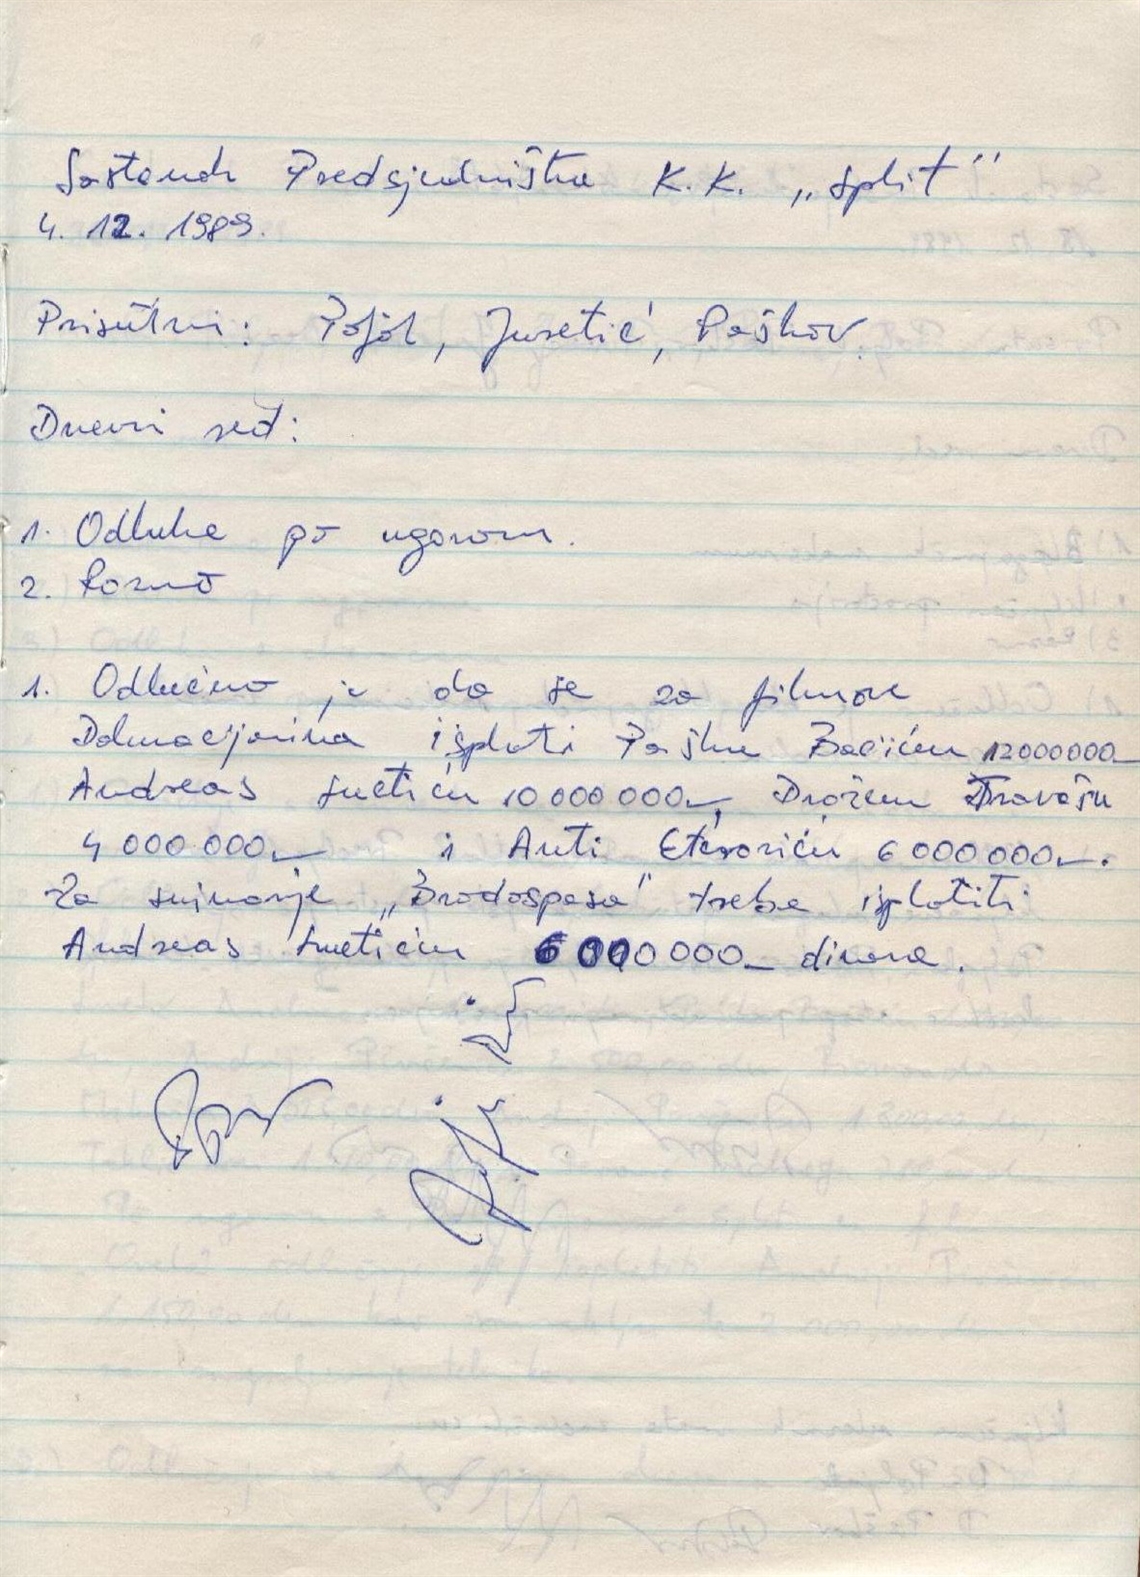 Sastanak Predsjedništva K.K. „Split"
4. 12. 1989.
Prisutni: Poljak, Juretić, Paškov.
Dnevni red:
1. Odluke po ugovoru.
2. Razno
1. Odlučeno je da se za filmove
Dalmacijavina isplati Paški Bačiću 12000000
Andreas Luetiću 10 000 000, Draženu Travašu
4 000 000 i Anti 6 000 000.
Za snimanje „Brodospasa" treba isplatiti
Andreas Luetiću 6 000 000 dinara.